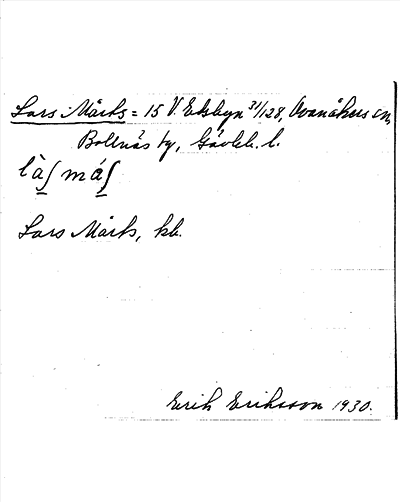 Lars Mårks = 15 V. Edsbyn 31/128, Ovanåkers sn,
Bollnäs tg, Gävleb. l.
là∫ má∫
Lars Mårks, kb.
Erik Eriksson 1930.